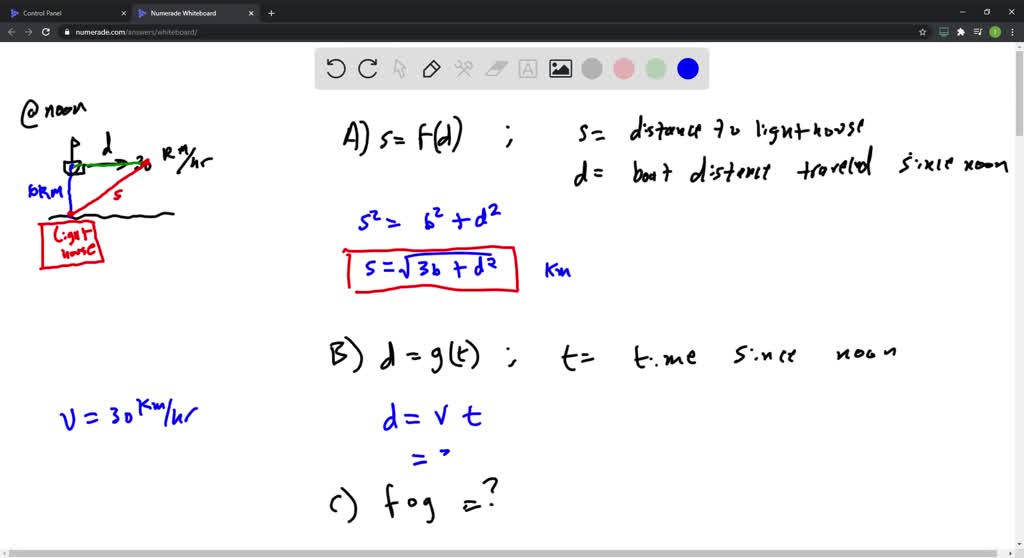 Control Panel
Numerade Whiteboard
numerade.com/answers/whiteboard/
A
@ noon
d
30 km/hr
6km
s
Light
house
A) s = f(d) ; s = distance to lighthouse
d = boat distance traveled since noon
s² = 6² + d²
s = √36 + d² km
B) d = g(t) ; t = time since noon
v = 30 km/hr
d = v t
=
C) fog = ?